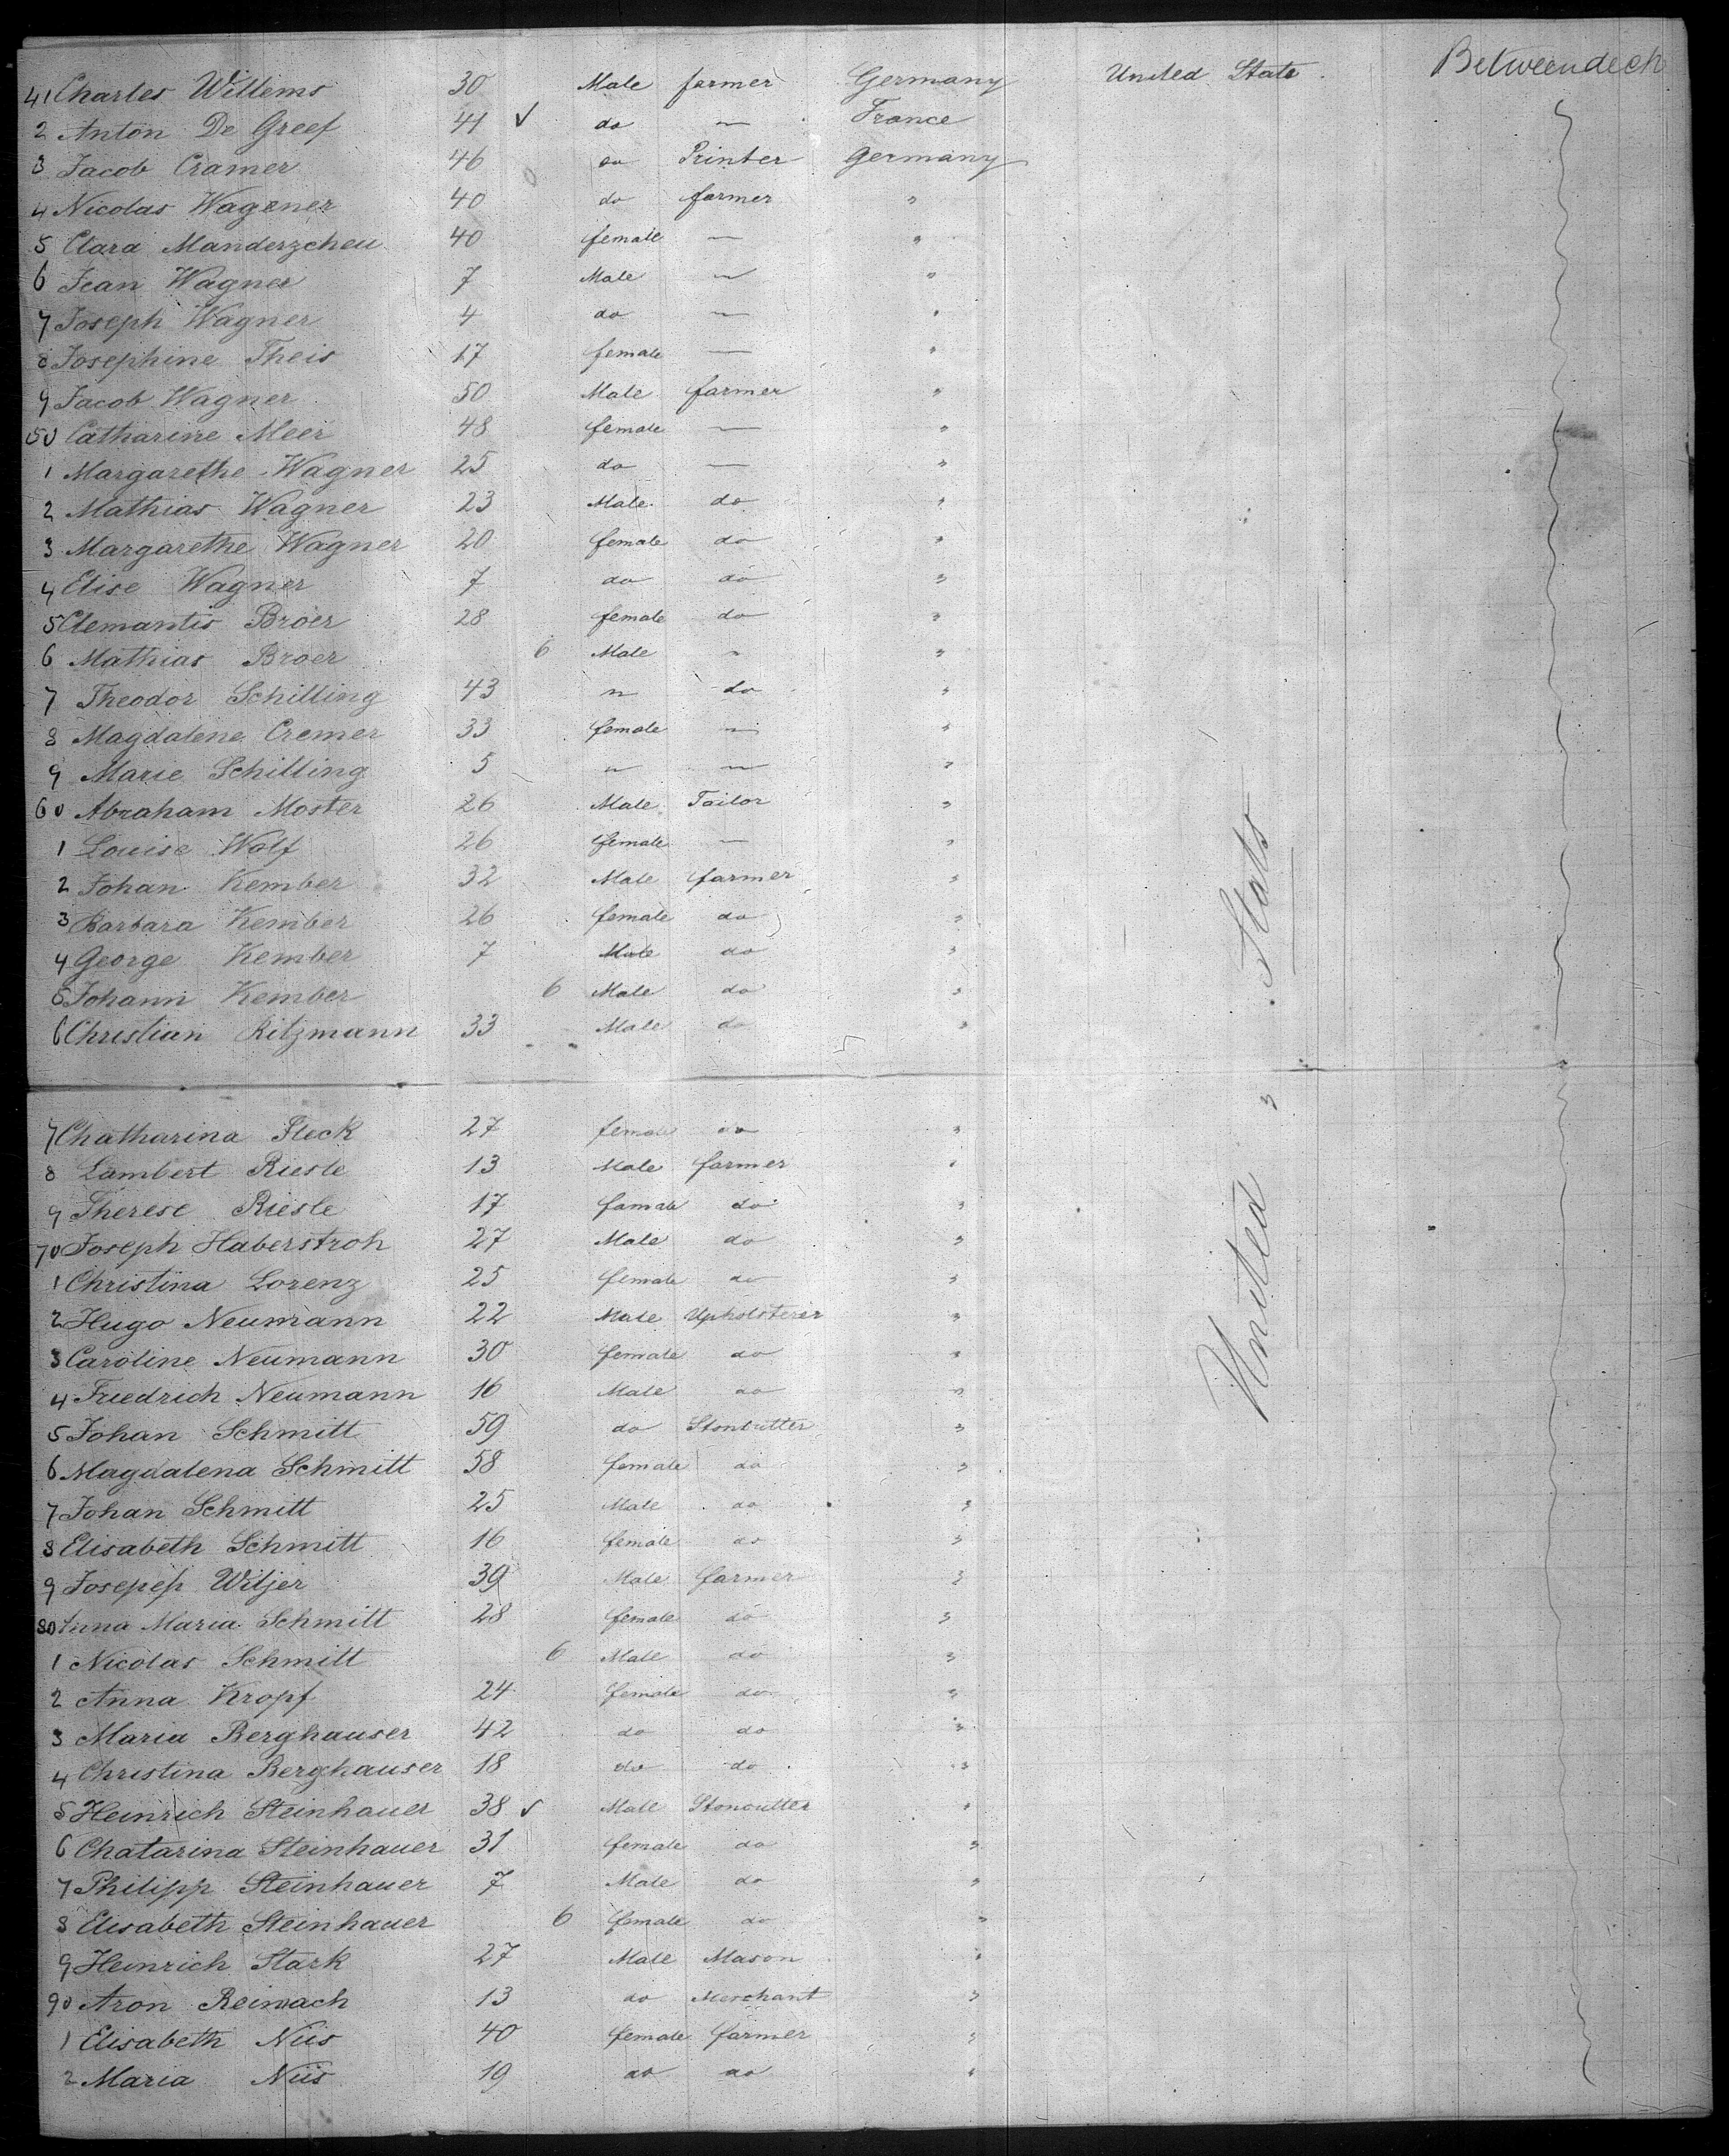 41 Charles Willems 30 Male farmer Germany United State Betweendeck
2 Anton De Greef 41 ✓ do — France
3 Jacob Cramer 46 do Printer Germany
4 Nicolas Wagener 40 do farmer "
5 Clara Manderzcheu 40 female — "
6 Jean Wagner 7 Male — "
7 Joseph Wagner 4 do — "
8 Josephine Theis 17 female — "
9 Jacob Wagner 50 Male farmer "
50 Catharine Meer 48 female — "
1 Margarethe Wagner 25 do — "
2 Mathias Wagner 23 Male do "
3 Margarethe Wagner 20 female do "
4 Elise Wagner 7 do do "
5 Clemantis Broer 28 female do "
6 Mathias Broer 6 Male " "
7 Theodor Schilling 43 " do "
8 Magdalene Cremer 33 female — "
9 Marie Schilling 5 " — "
60 Abraham Moster 26 Male Tailor "
1 Louise Wolf 26 female — "
2 Johan Kember 32 Male farmer "
3 Barbara Kember 26 female do "
4 George Kember 7 Male do "
5 Johann Kember 6 Male do "
6 Christian Ritzmann 33 Male do "
7 Chatharina Fleck 27 female do "
8 Lambert Riesle 13 Male farmer "
9 Therese Riesle 17 famale do "
70 Joseph Haberstroh 27 Male do "
1 Christina Lorenz 25 female do "
2 Hugo Neumann 22 Male Upholsterer "
3 Caroline Neumann 30 female do "
4 Friedrich Neumann 16 Male do "
5 Johan Schmitt 59 do Stoncutter "
6 Magdalena Schmitt 58 female do "
7 Johan Schmitt 25 Male do "
8 Elisabeth Schmitt 16 female do "
9 Josepep Witjer 39 Male farmer "
80 Anna Maria Schmitt 28 female do "
1 Nicolas Schmitt 6 Male do "
2 Anna Kropf 24 female do "
3 Maria Berghauser 42 do do "
4 Christina Berghauser 18 do do "
5 Heinrich Steinhauer 38 ✓ Male Stoncutter "
6 Chatarina Steinhauer 31 female do "
7 Philipp Steinhauer 7 Male do "
8 Elisabeth Steinhauer 6 female do "
9 Heinrich Stark 27 Male Mason "
90 Aron Reinach 13 do Merchant "
1 Elisabeth Niis 40 female farmer "
2 Maria Niis 19 do do "
United " Stats